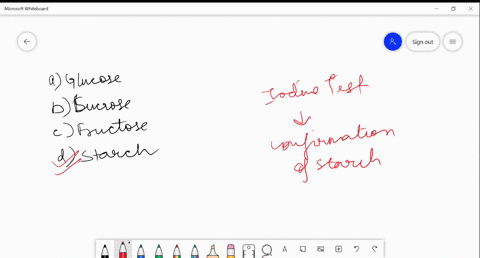 Microsoft Whiteboard
Sign out
a) Glucose
b) Sucrose
c) Fructose
d) Starch
Iodine Test
confirmation
of starch